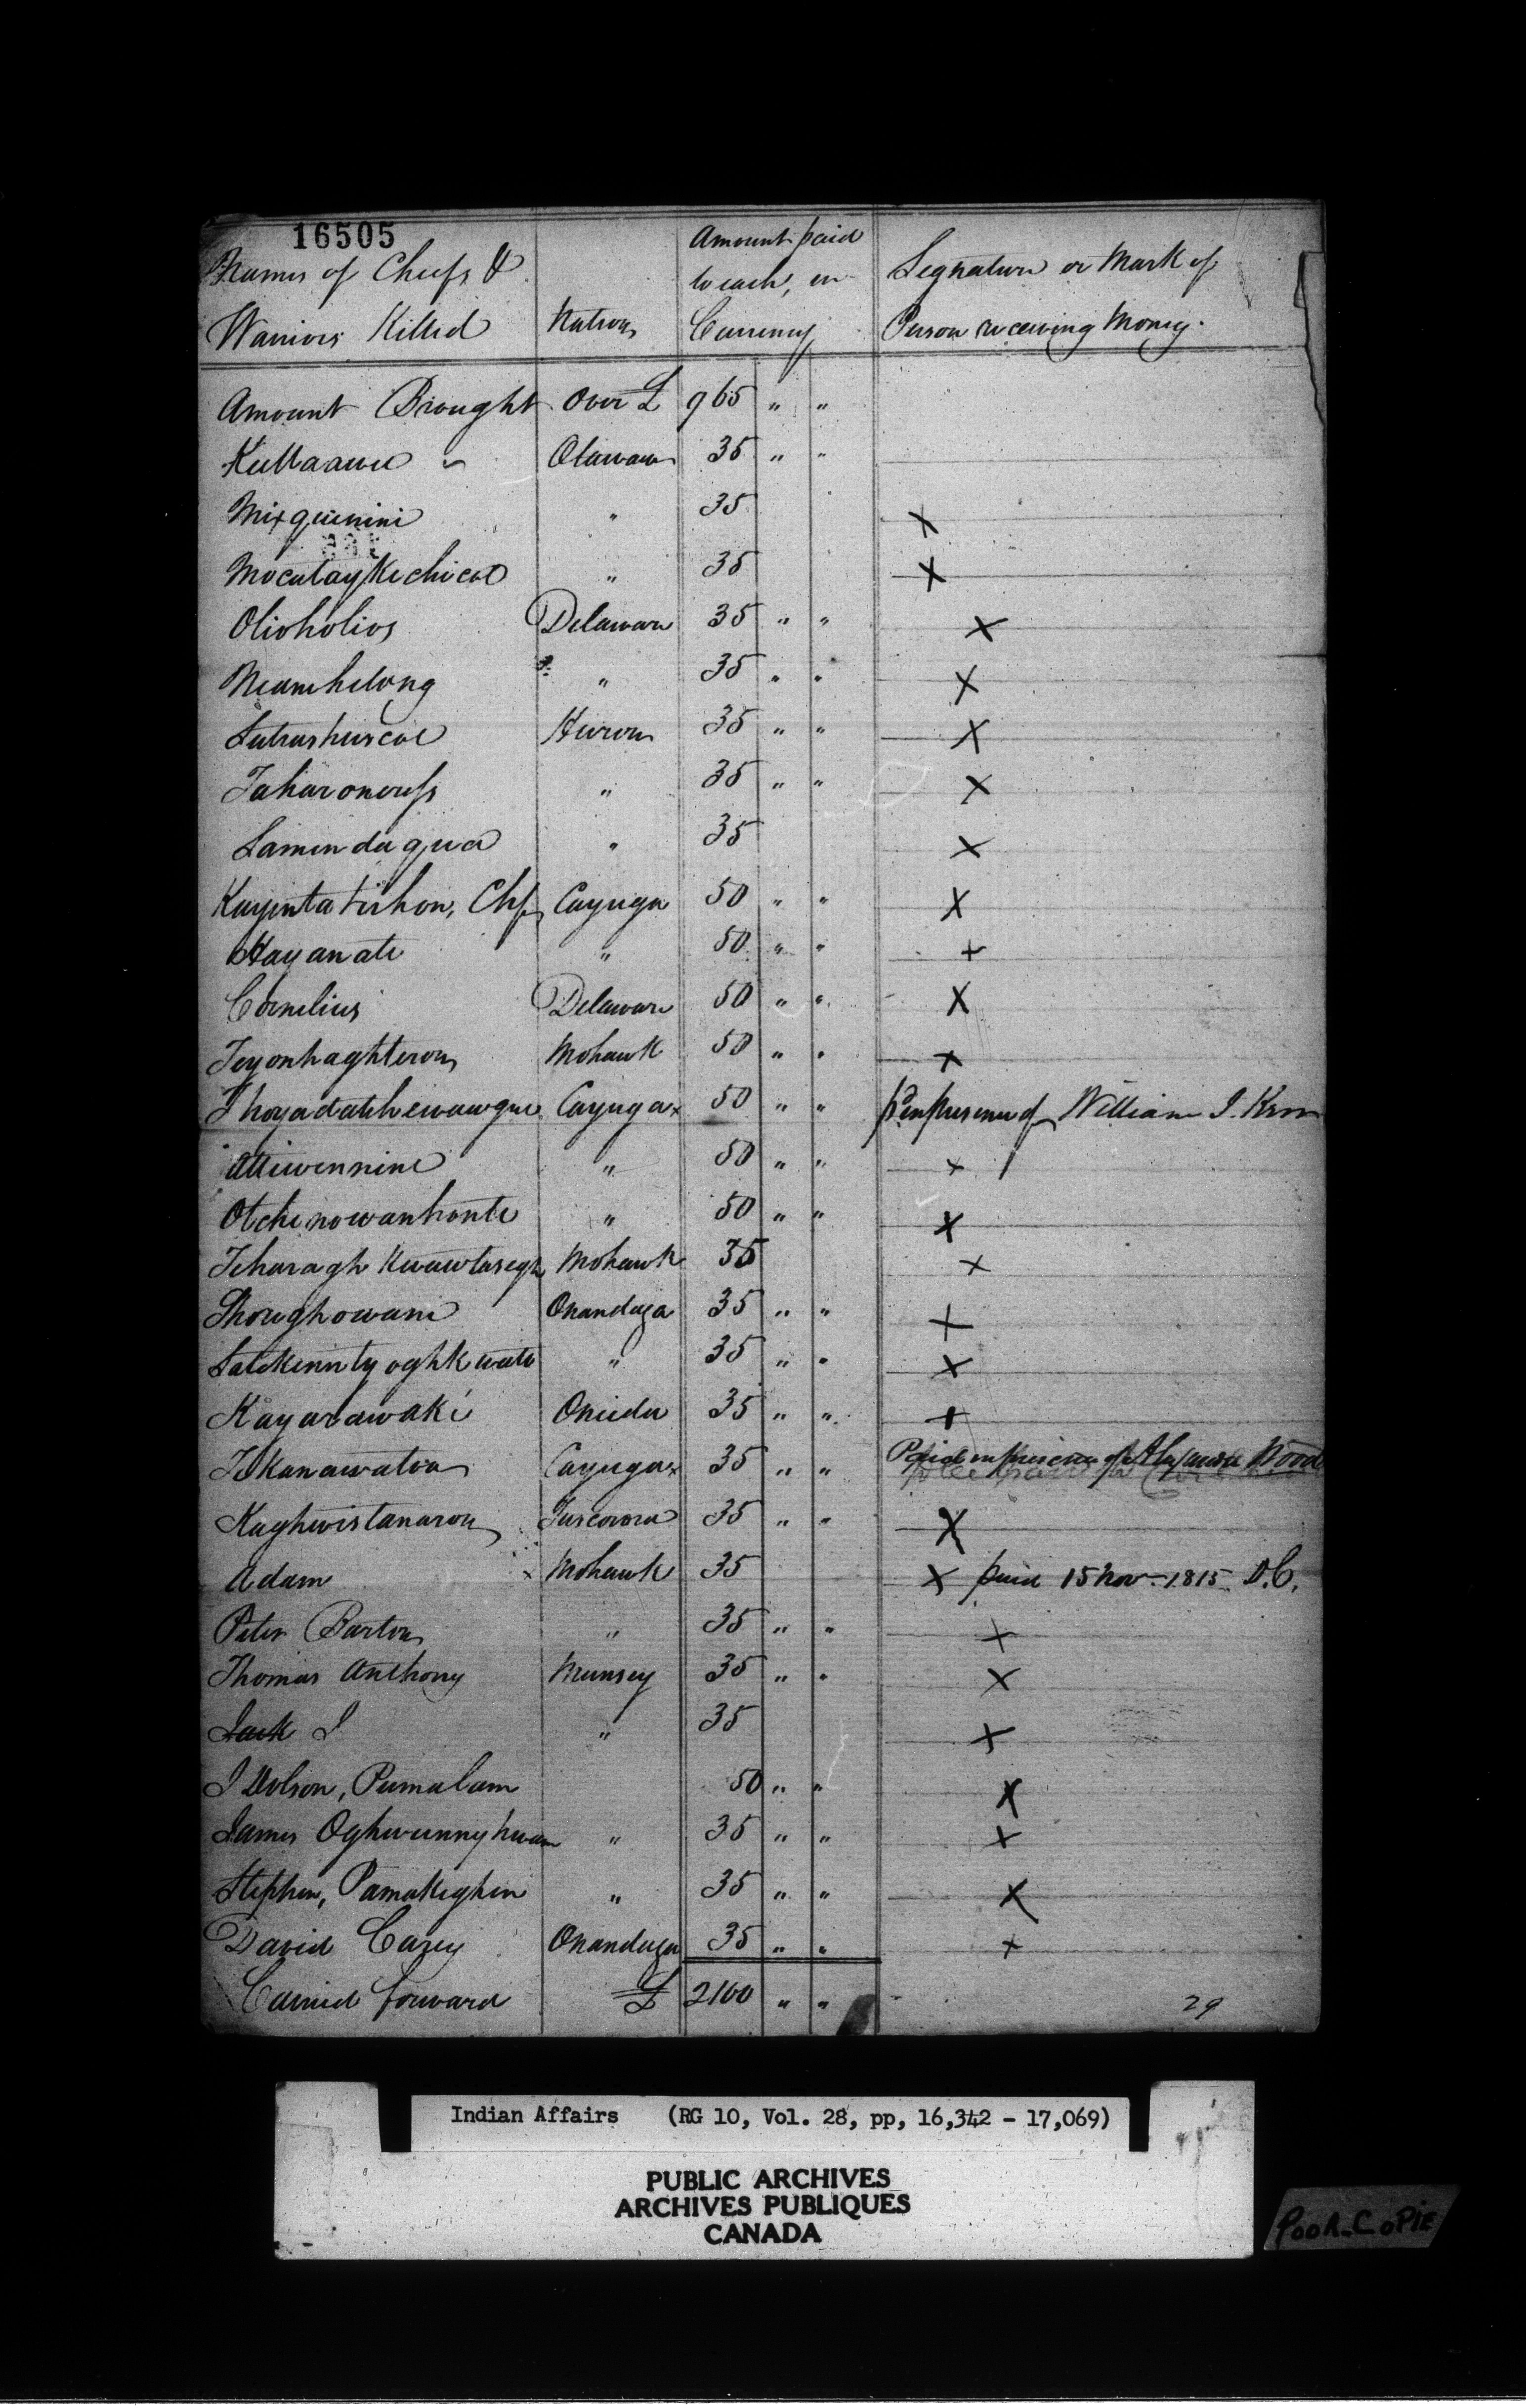 16505
Names of Chiefs &
Warriors Killed
Nation
Amount paid
to each, in
Currency
Signature or Mark of
Person receiving Money.
Amount Brought Over £ 965 " "
Kuttaawe Otawaw 35 " "
Mixquinini " 35 X
Mocutay Kechicot " 35 X
Olioholios Delaware 35 " " X
Neamhelong " 35 " " X
Sutrushuscoe Huron 35 " " X
Taharoneuss " 35 " " X
Lamendaqua " 35 X
Kayentatirhon, Chf Cayuga 50 " " X
Hayanate " 50 " " +
Cornelius Delaware 50 " " X
Teyonhaghteron Mohawk 50 " " X
Thoyadatihewawgne Cayuga x 50 " " p. in presence of William J. Kerr
Attiwennine " 50 " " x
Otchinowanhonte " 50 " " X
Teharagh Kwawtasegh Mohawk 35 X
Shorighowane Onandaga 35 " " X
Satekenntyoghkwate " 35 " " X
Kayarawaké Oneida 35 " " +
Tekanawatoa Cayuga x 35 " " Paid in presence of Wood
Kaghwistanaron Tuscorora 35 " " X
Adam x Mohawk 35 X paid 15 Nov. 1815 D.C.
Peter Barton " 35 " " X
Thomas Anthony Munsey 35 " " X
Jack J " 35 X
J Dolson, Pumalam 50 " " X
James Oghwunnyhwam " 35 " " X
Stephen, Pamakeghen " 35 " " X
David Carey Onandaga 35 " " X
Carried forward £ 2100 " "
29
Indian Affairs (RG 10, Vol. 28, pp, 16,342 - 17,069)
PUBLIC ARCHIVES
ARCHIVES PUBLIQUES
CANADA
POOR COPIE